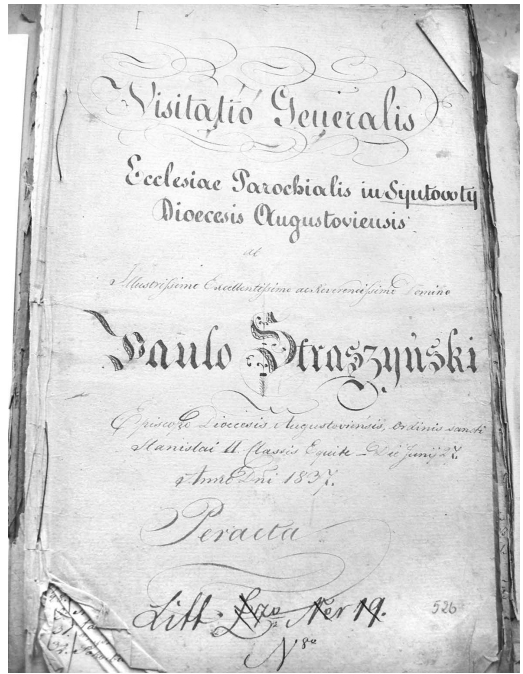 Visitatio Generalis
Ecclesiae Parochialis in Syntowty
Dioecesis Augustoviensis
ab
Illustrissimo Excellentissimo ac Reverendissimo Domino
Paulo Straszyński
Episcopo Dioecesis Augustoviensis, Ordinis sancti
Stanislai II. Classis Equite Die Junij 27.
Anno Dni 1837.
Peracta
Litt. Nér 19.
526
N 8